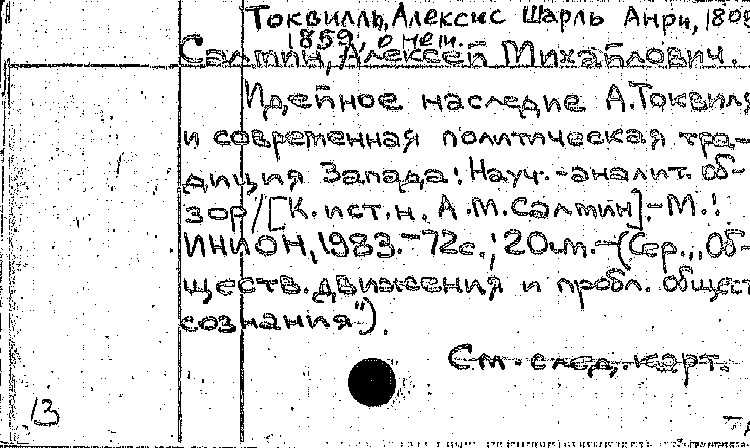 Токвилль, Алексис Шарль Анри, 180
1859, о нем.
Салмин, Алексей Михайлович.
Идейное наследие А.Токвиля
и современная политическая тра-
диция Запада: Науч.-аналит. об-
зор/[К.ист.н. А.М.Салмин].-М.:
ИНИОН,1983.-72с.; 20см.-(Сер.,,Об-
ществ.движения и пробл. общест
сознания").
См. след. карт.
13